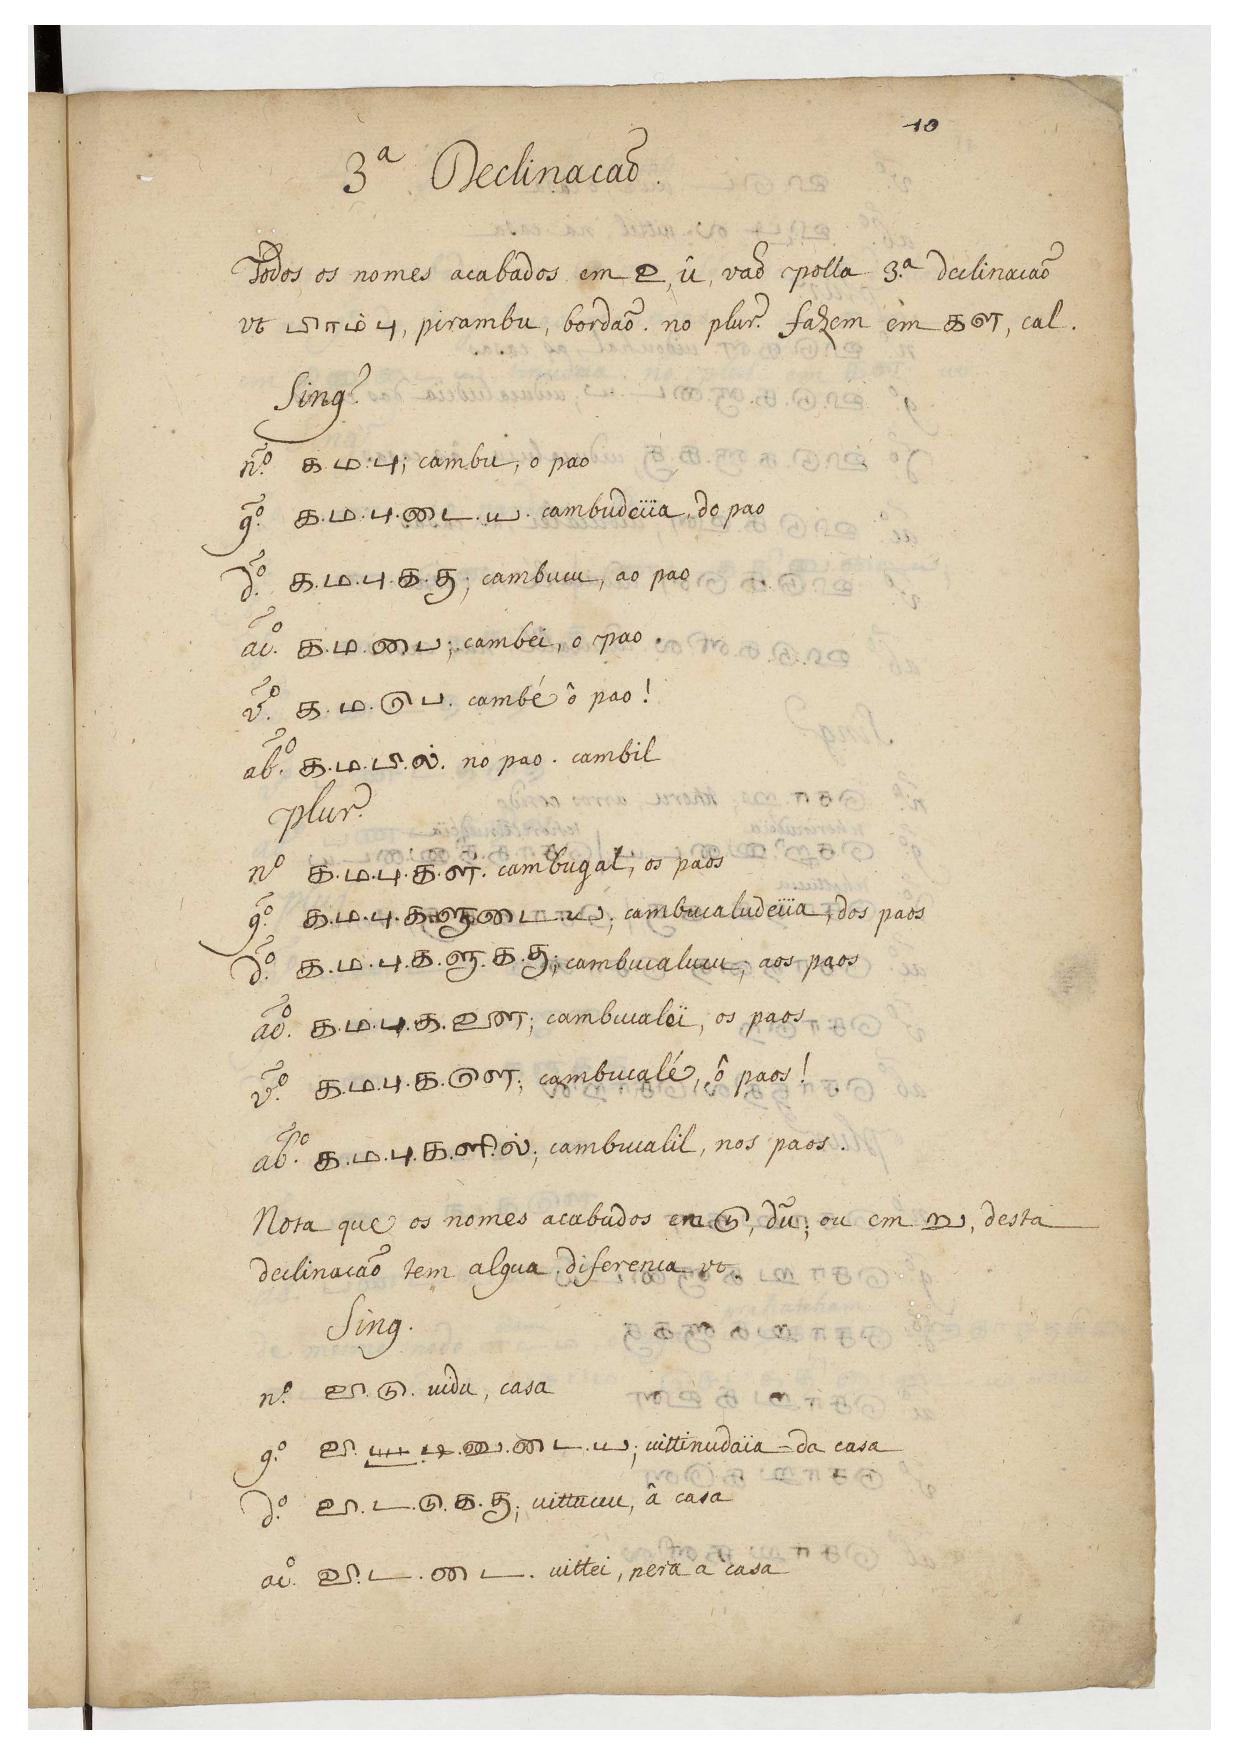 10
3ª Declinacaõ.
Todos os nomes acabados em உ, û, vaõ polla 3.ª declinacaõ
vt பிராம்பு, pirambu, bordaõ. no plur. fazem em கள, cal.
Sing.
n.º க.ம.பு; cambu, o pao
g.º க.ம.பு.டை.ய. cambudeïia, do pao
d.º க.ம.பு.க.கு; cambucu, ao pao
ac.º க.ம.பை; cambei, o pao.
v.º க.ம.பெ. cambé ô pao!
ab.º க.ம.பி.ல். no pao. cambil
plur.
n.º க.ம.பு.க.ள். cambugal, os paos
g.º க.ம.பு.களுடைய; cambucaludeïia, dos paos
d.º க.ம.பு.க.ளு.க.கு; cambucalucu; aos paos
ac.º க.ம.பு.க.ளை; cambucaleï, os paos
v.º க.ம.பு.க.ளெ; cambucalé, ô paos!
ab.º க.ம.பு.க.ளி.ல்; cambucalil, nos paos.
Nota que os nomes acabados em டு, dũ; ou em று, desta
declinacaõ tem algua diferenca vt.
Sing.
n.º வீ.டு. uidu, casa
g.º வீ. டை.ய; uittinudaïa - da casa
d.º வீ.ட.டு.க.கு; uittucu, â casa
ac.º வீ.ட.டை. uittei, pera a casa